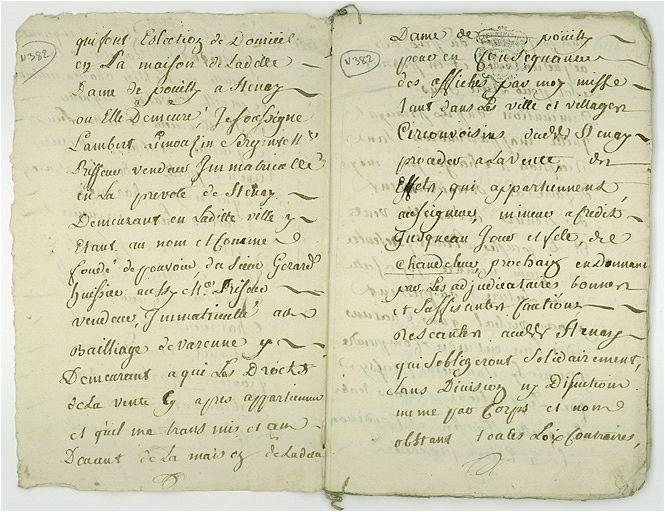 v382
qui font Eslection de Domicil
en La maison de Ladette
Dame de pouilly a Stenay
ou Elle Demeure, Je soussigne
Lambert Limousin Sergent
Priseur vendeur Jmmatriculle
en La prevoté de Stenay
Demeurant en Laditte ville y
Etant au nom et comme
fondé de pouvoir du sieur Gerard
huissier aussy Priseur
vendeur, Jmmatriculé au
Bailliage de varenne y
Demeurant a qui Les Droicts
de La vente Cy apres appartienne
et qu'il ma transmis et au
Devant de La maison de Ladite
v382
Dame de pouilly
pour en Consequance
des affiches par moy misse
tant dans Les ville et villages
Circonvoisins dudit Stenay
proceder a La vente, des
Effets qui appartiennent,
audit seigneur, mineur a credit
Jusqueau Jour et fete, de
Chandeleur prochain en Donnant
par Les adjudicataires bonnes
et Suffisantes Cautions
Resceantes audit Stenay
qui s'obligeront Solidairement,
Sans Division ny Discution
meme par Corps et nom
obstant toutes Loix Contraires,